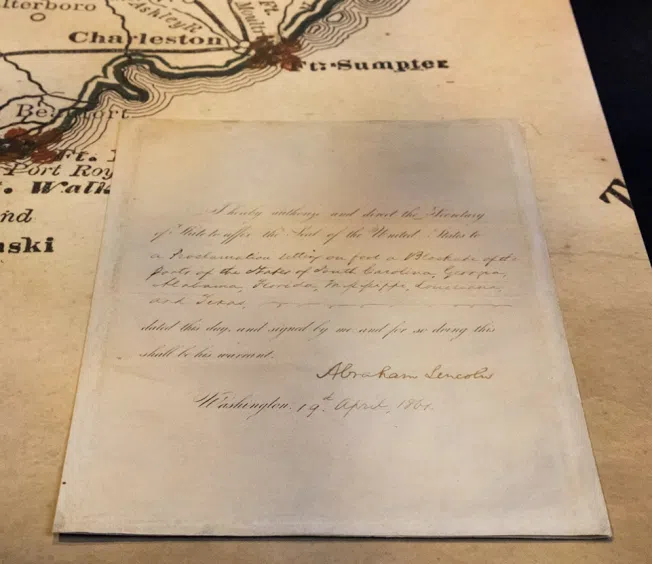 lterboro
Ashley R.
Ft.
Moultri
Charleston
Ft. Sumpter
Beaufort
Ft.
Port Roy
t. Walk
nd
ski
T
I hereby authorize and direct the Secretary
of State to affix the Seal of the United States to
a Proclamation setting on foot a Blockade of the
ports of the States of South Carolina, Georgia,
Alabama, Florida, Mississippi, Louisiana,
and Texas,
dated this day, and signed by me and for so doing this
shall be his warrant.
Abraham Lincoln
Washington, 19th April, 1861.